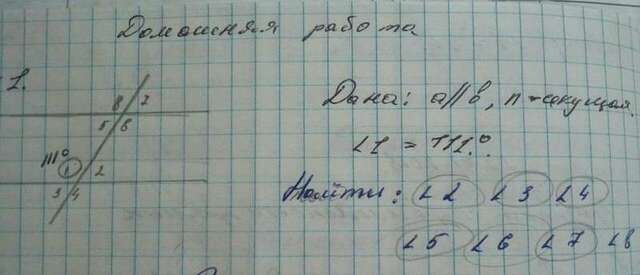 Домашняя работа
1.
Дана: a//b, n-секущая.
∠1 = 111°.
Найти: ∠2 ∠3 ∠4
∠5 ∠6 ∠7 ∠8
8 7
5 6
111°
1 2
3 4